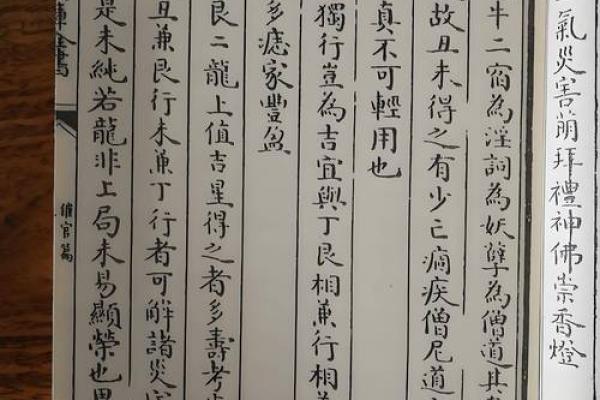 氣災害萠拜禮神佛崇香燈
牛二宿為淫詞為妖孽為僧道其
故丑未得之有少亡痼疾僧尼道
真不可輕用也
獨行豈為吉宜與丁艮相兼行相為
多痣家豐盈
艮二龍上值吉星得之者多壽考
丑兼艮行未兼丁行者可解諸災
是未純若龍非上局未易顯榮也
催官篇